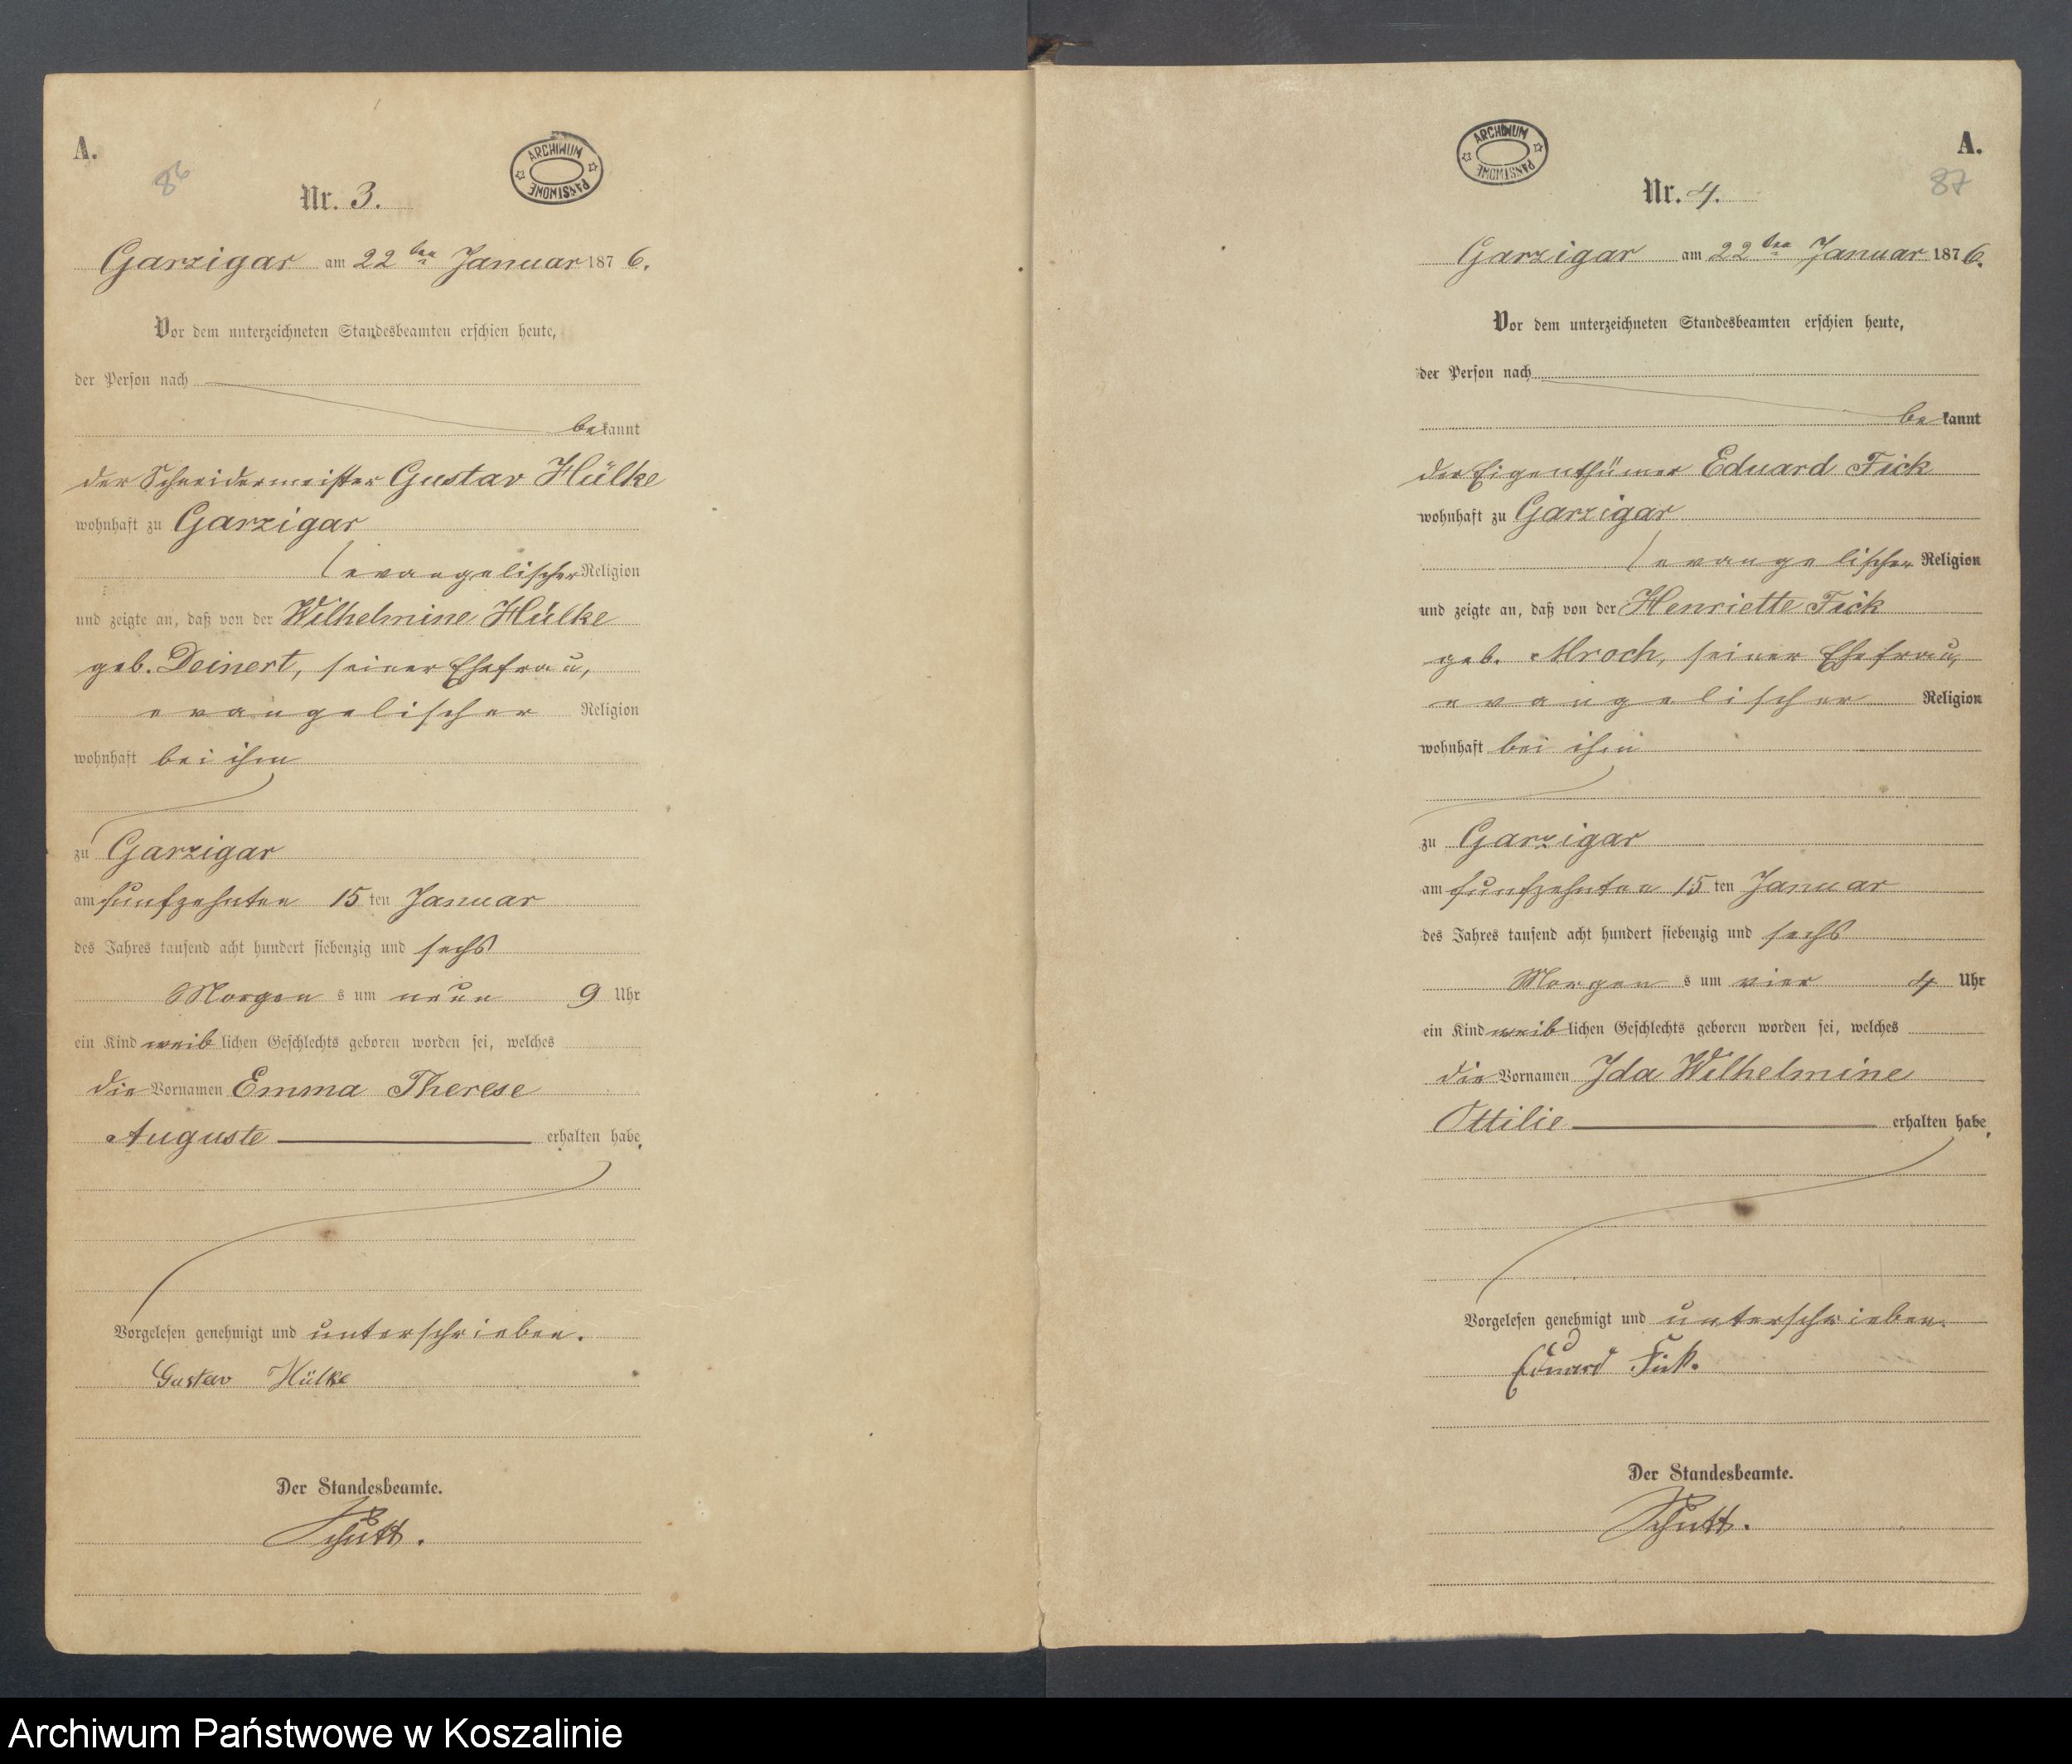 A.
86
ARCHIWUM PAŃSTWOWE
Nr. 3.
Garzigar am 22ten Januar 1876.
Vor dem unterzeichneten Standesbeamten erschien heute,
der Person nach
bekannt
der Schneidermeister Gustav Hülke
wohnhaft zu Garzigar
evangelischer Religion
und zeigte an, daß von der Wilhelmine Hülke
geb. Deinert, seiner Ehefrau,
evangelischer Religion
wohnhaft bei ihm
zu Garzigar
am fünfzehnten 15 ten Januar
des Jahres tausend acht hundert siebenzig und sechs
Morgens um neun 9 Uhr
ein Kind weiblichen Geschlechts geboren worden sei, welches
die Vornamen Emma Therese
Auguste erhalten habe.
Vorgelesen genehmigt und unterschrieben.
Gustav Hülke
Der Standesbeamte.
Schütt.
ARCHIWUM PAŃSTWOWE
A.
87
Nr. 4.
Garzigar am 22ten Januar 1876.
Vor dem unterzeichneten Standesbeamten erschien heute,
der Person nach
bekannt
der Eigenthümer Eduard Fick
wohnhaft zu Garzigar
evangelischer Religion
und zeigte an, daß von der Henriette Fick
geb. Mroch, seiner Ehefrau,
evangelischer Religion
wohnhaft bei ihm
zu Garzigar
am fünfzehnten 15 ten Januar
des Jahres tausend acht hundert siebenzig und sechs
Morgens um vier 4 Uhr
ein Kind weiblichen Geschlechts geboren worden sei, welches
die Vornamen Ida Wilhelmine
Ottilie erhalten habe.
Vorgelesen genehmigt und unterschrieben.
Eduard Fick.
Der Standesbeamte.
Schütt.
Archiwum Państwowe w Koszalinie